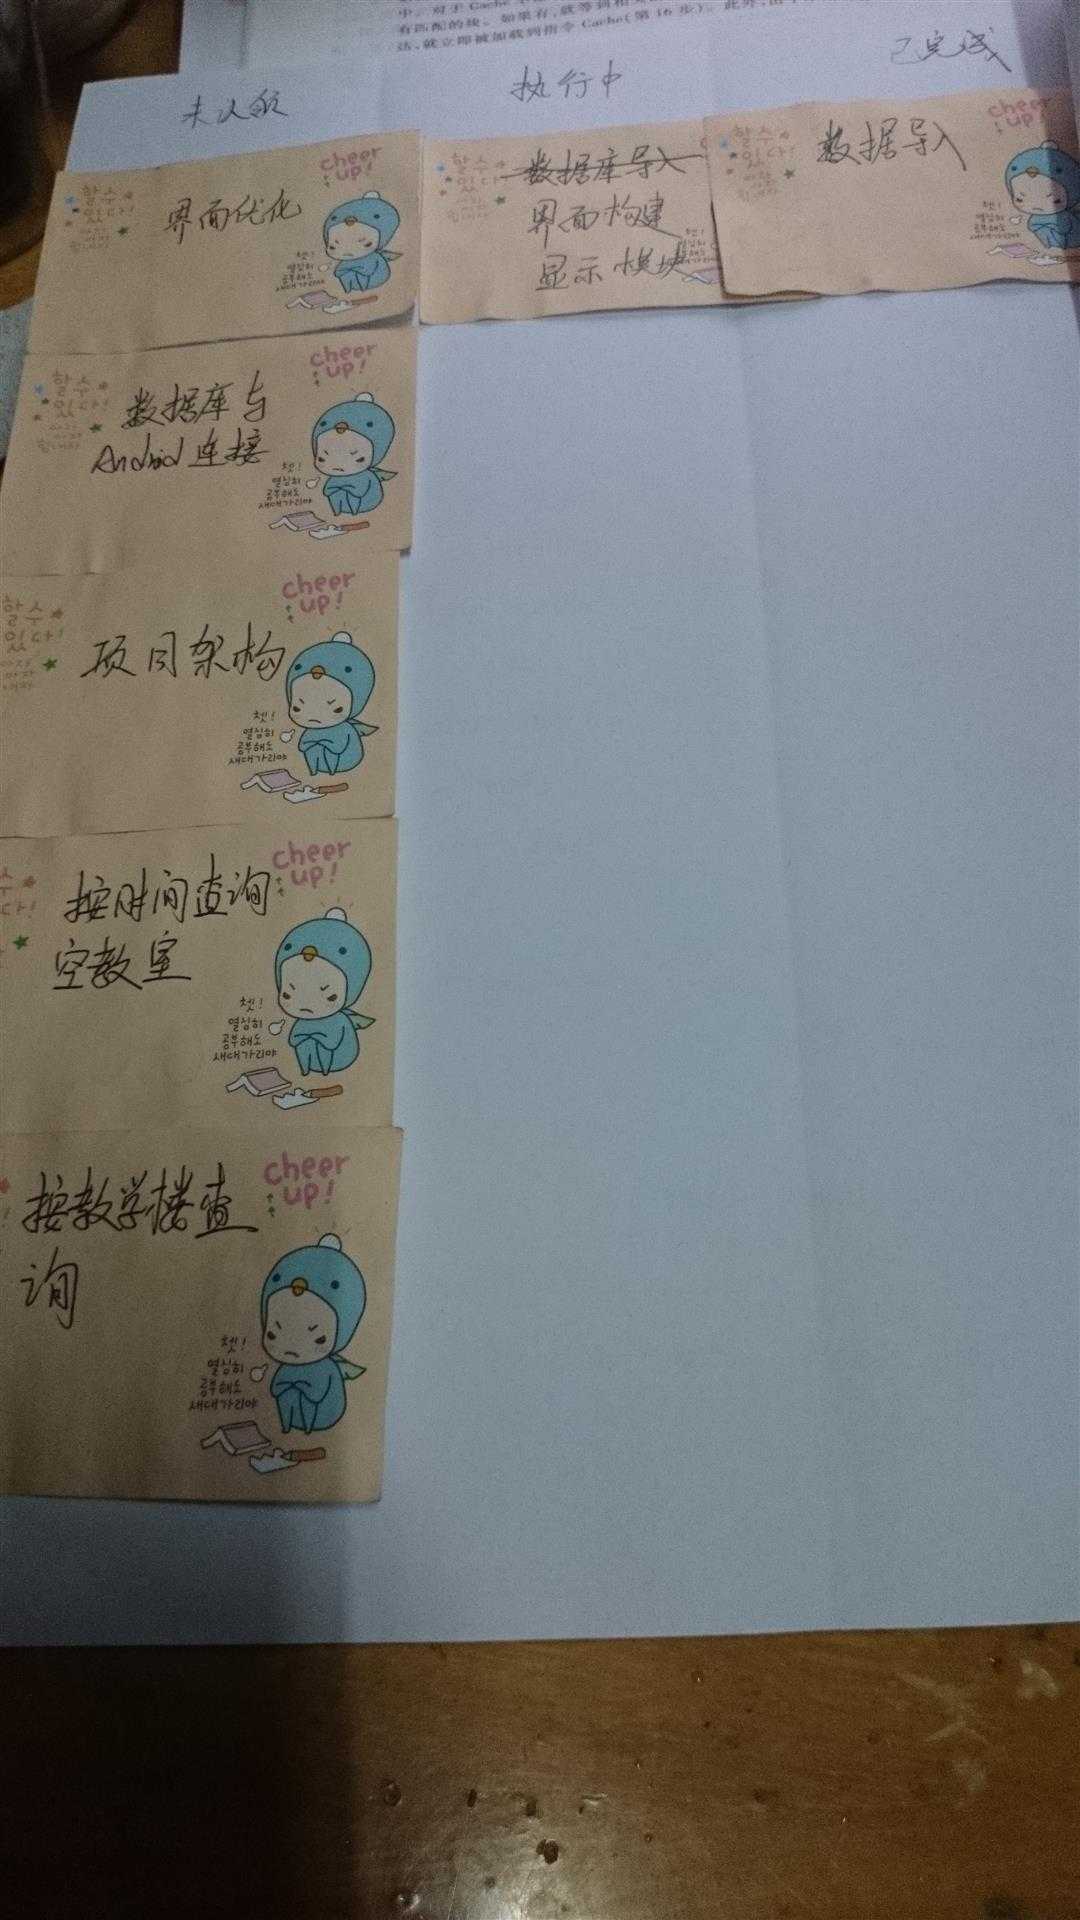 有匹配的块。如果有,就等到相
达,就立即被加载到指令 Cache(第 16 步)。此外,由
未认领
执行中
已完成
cheer up!
할 수 있다!
界面优化
쳇!
열심히
공부해도
새대가리야
数据库导入
界面构建
显示模块
할 수
있다
数据导入
cheer
up!
할 수
있다!
쳇!
열심히
공부해도
새대가리야
cheer
up!
할 수
있다!
数据库与
Android 连接
쳇!
열심히
공부해도
새대가리야
cheer
up!
할 수
있다!
아자
아자
项目架构
쳇!
열심히
공부해도
새대가리야
cheer
up!
수
다!
按时间查询
空教室
쳇!
열심히
공부해도
새대가리야
cheer
up!
按教学楼查
询
쳇!
열심히
공부해도
새대가리야